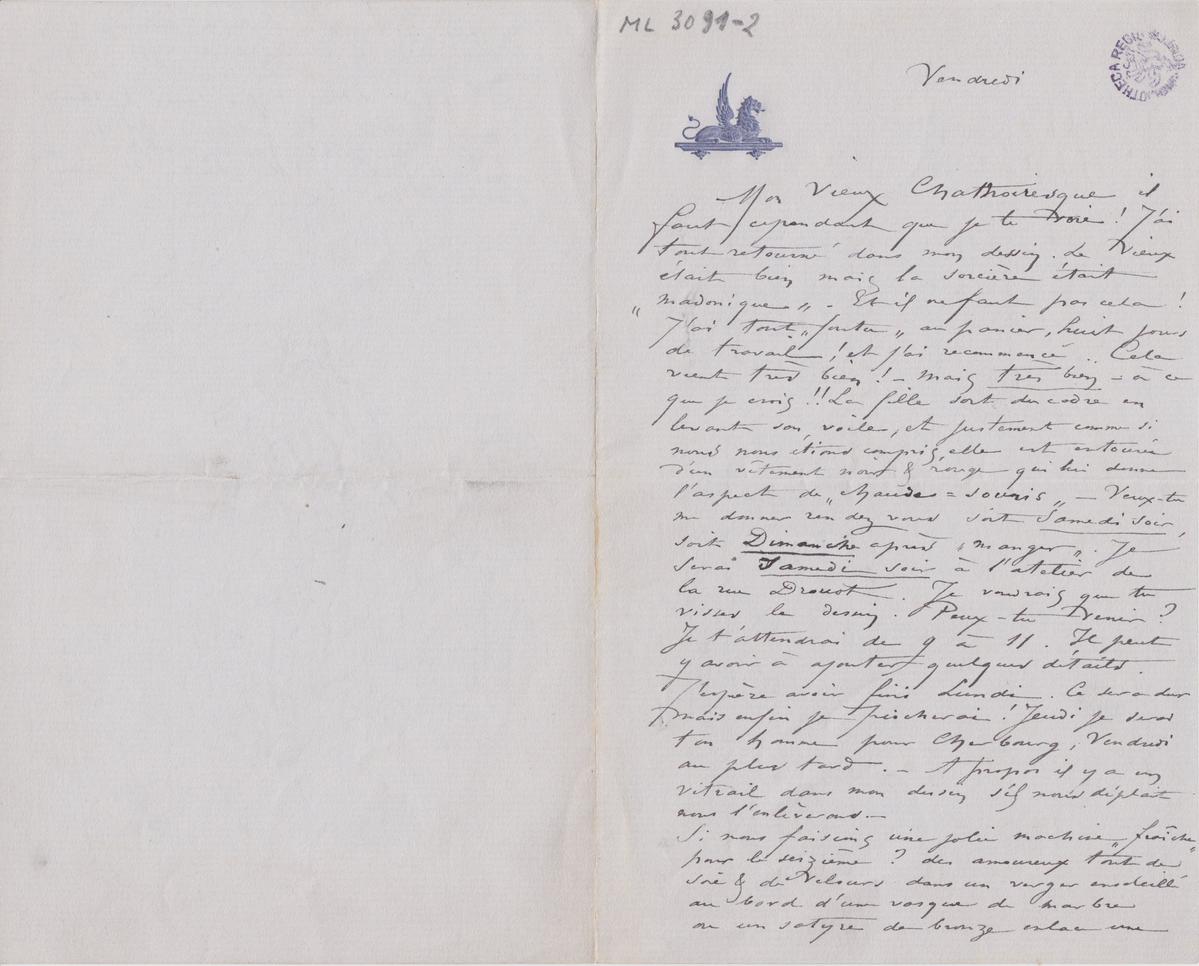 ML 3091-2
Vendredi
Mon Vieux il
faut cependant que je te voie ! J'ai
tout retourné dans mon dessin. Le Vieux
était bien mais la sorcière était
„ madonique „ - Et il ne faut pas cela !
J'ai tout „ foutu „ au panier, huit jours
de travail ! et j'ai recommencé .. Cela
vient très bien ! - Mais très bien - à ce
que je crois !! La fille sort du cadre en
levant son voile, et justement comme si
nous nous étions compris, elle est entourée
d'un vêtement noir & rouge qui lui donne
l'aspect de „ chaude = souris „ - Veux-tu
me donner rendez vous soit Samedi soir,
soit Dimanche après „ manger „. Je
serai Samedi soir à l'atelier de
la rue Drouot. Je voudrais que tu
visses le dessin. Peux-tu venir ?
Je t'attendrai de 9 à 11. Il peut
y avoir à ajouter quelques détails.
J'espère avoir fini Lundi. Ce sera dur
mais enfin je piocherai ! Jeudi je serai
ton homme pour Cherbourg, Vendredi
au plus tard. - A propos il y a un
vitrail dans mon dessin s'il nous déplait
nous l'enlèverons -
Si nous faisions une jolie machine „ fraîche „
pour le seizième ? des amoureux tout de
soie & de Velours dans un verger ensoleillé
au bord d'une vasque de marbre
ou un satyre de bronze enlace une